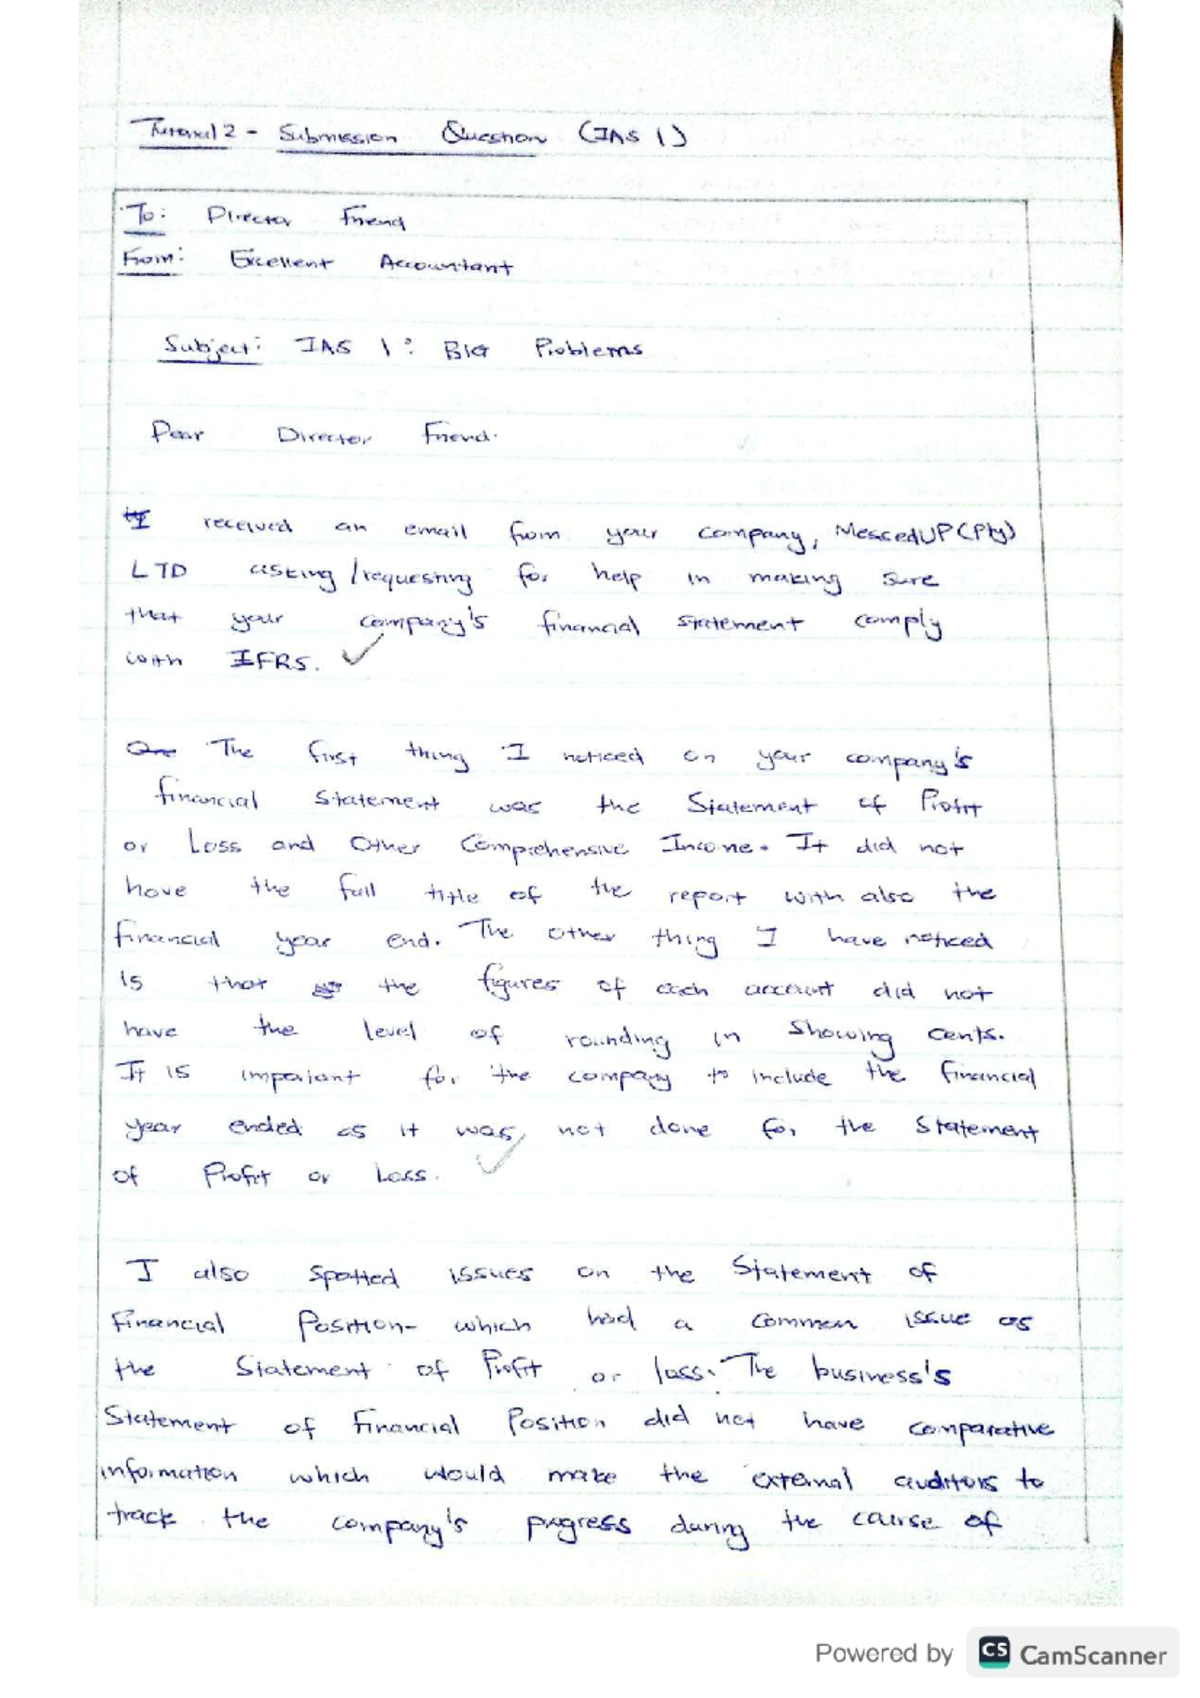 Tutorial 2 - Submission Question (IAS 1)
To: Director Friend
From: Excellent Accountant
Subject: IAS 1: BIG Problems
Dear Director Friend.
I received an email from your company, MessedUP (Pty)
LTD asking/requesting for help in making sure
that your company's financial statement comply
with IFRS.
The first thing I noticed on your company's
financial statement was the Statement of Profit
or Loss and Other Comprehensive Income. It did not
have the full title of the report with also the
financial year end. The other thing I have noticed
is that the figures of each account did not
have the level of rounding in showing cents.
It is important for the company to include the financial
year ended as it was not done for the Statement
of Profit or Loss.
I also spotted issues on the Statement of
Financial Position- which had a common issue as
the Statement of Profit or loss. The business's
Statement of Financial Position did not have comparative
information which would make the external auditors to
track the company's progress during the cause of
Powered by CS CamScanner